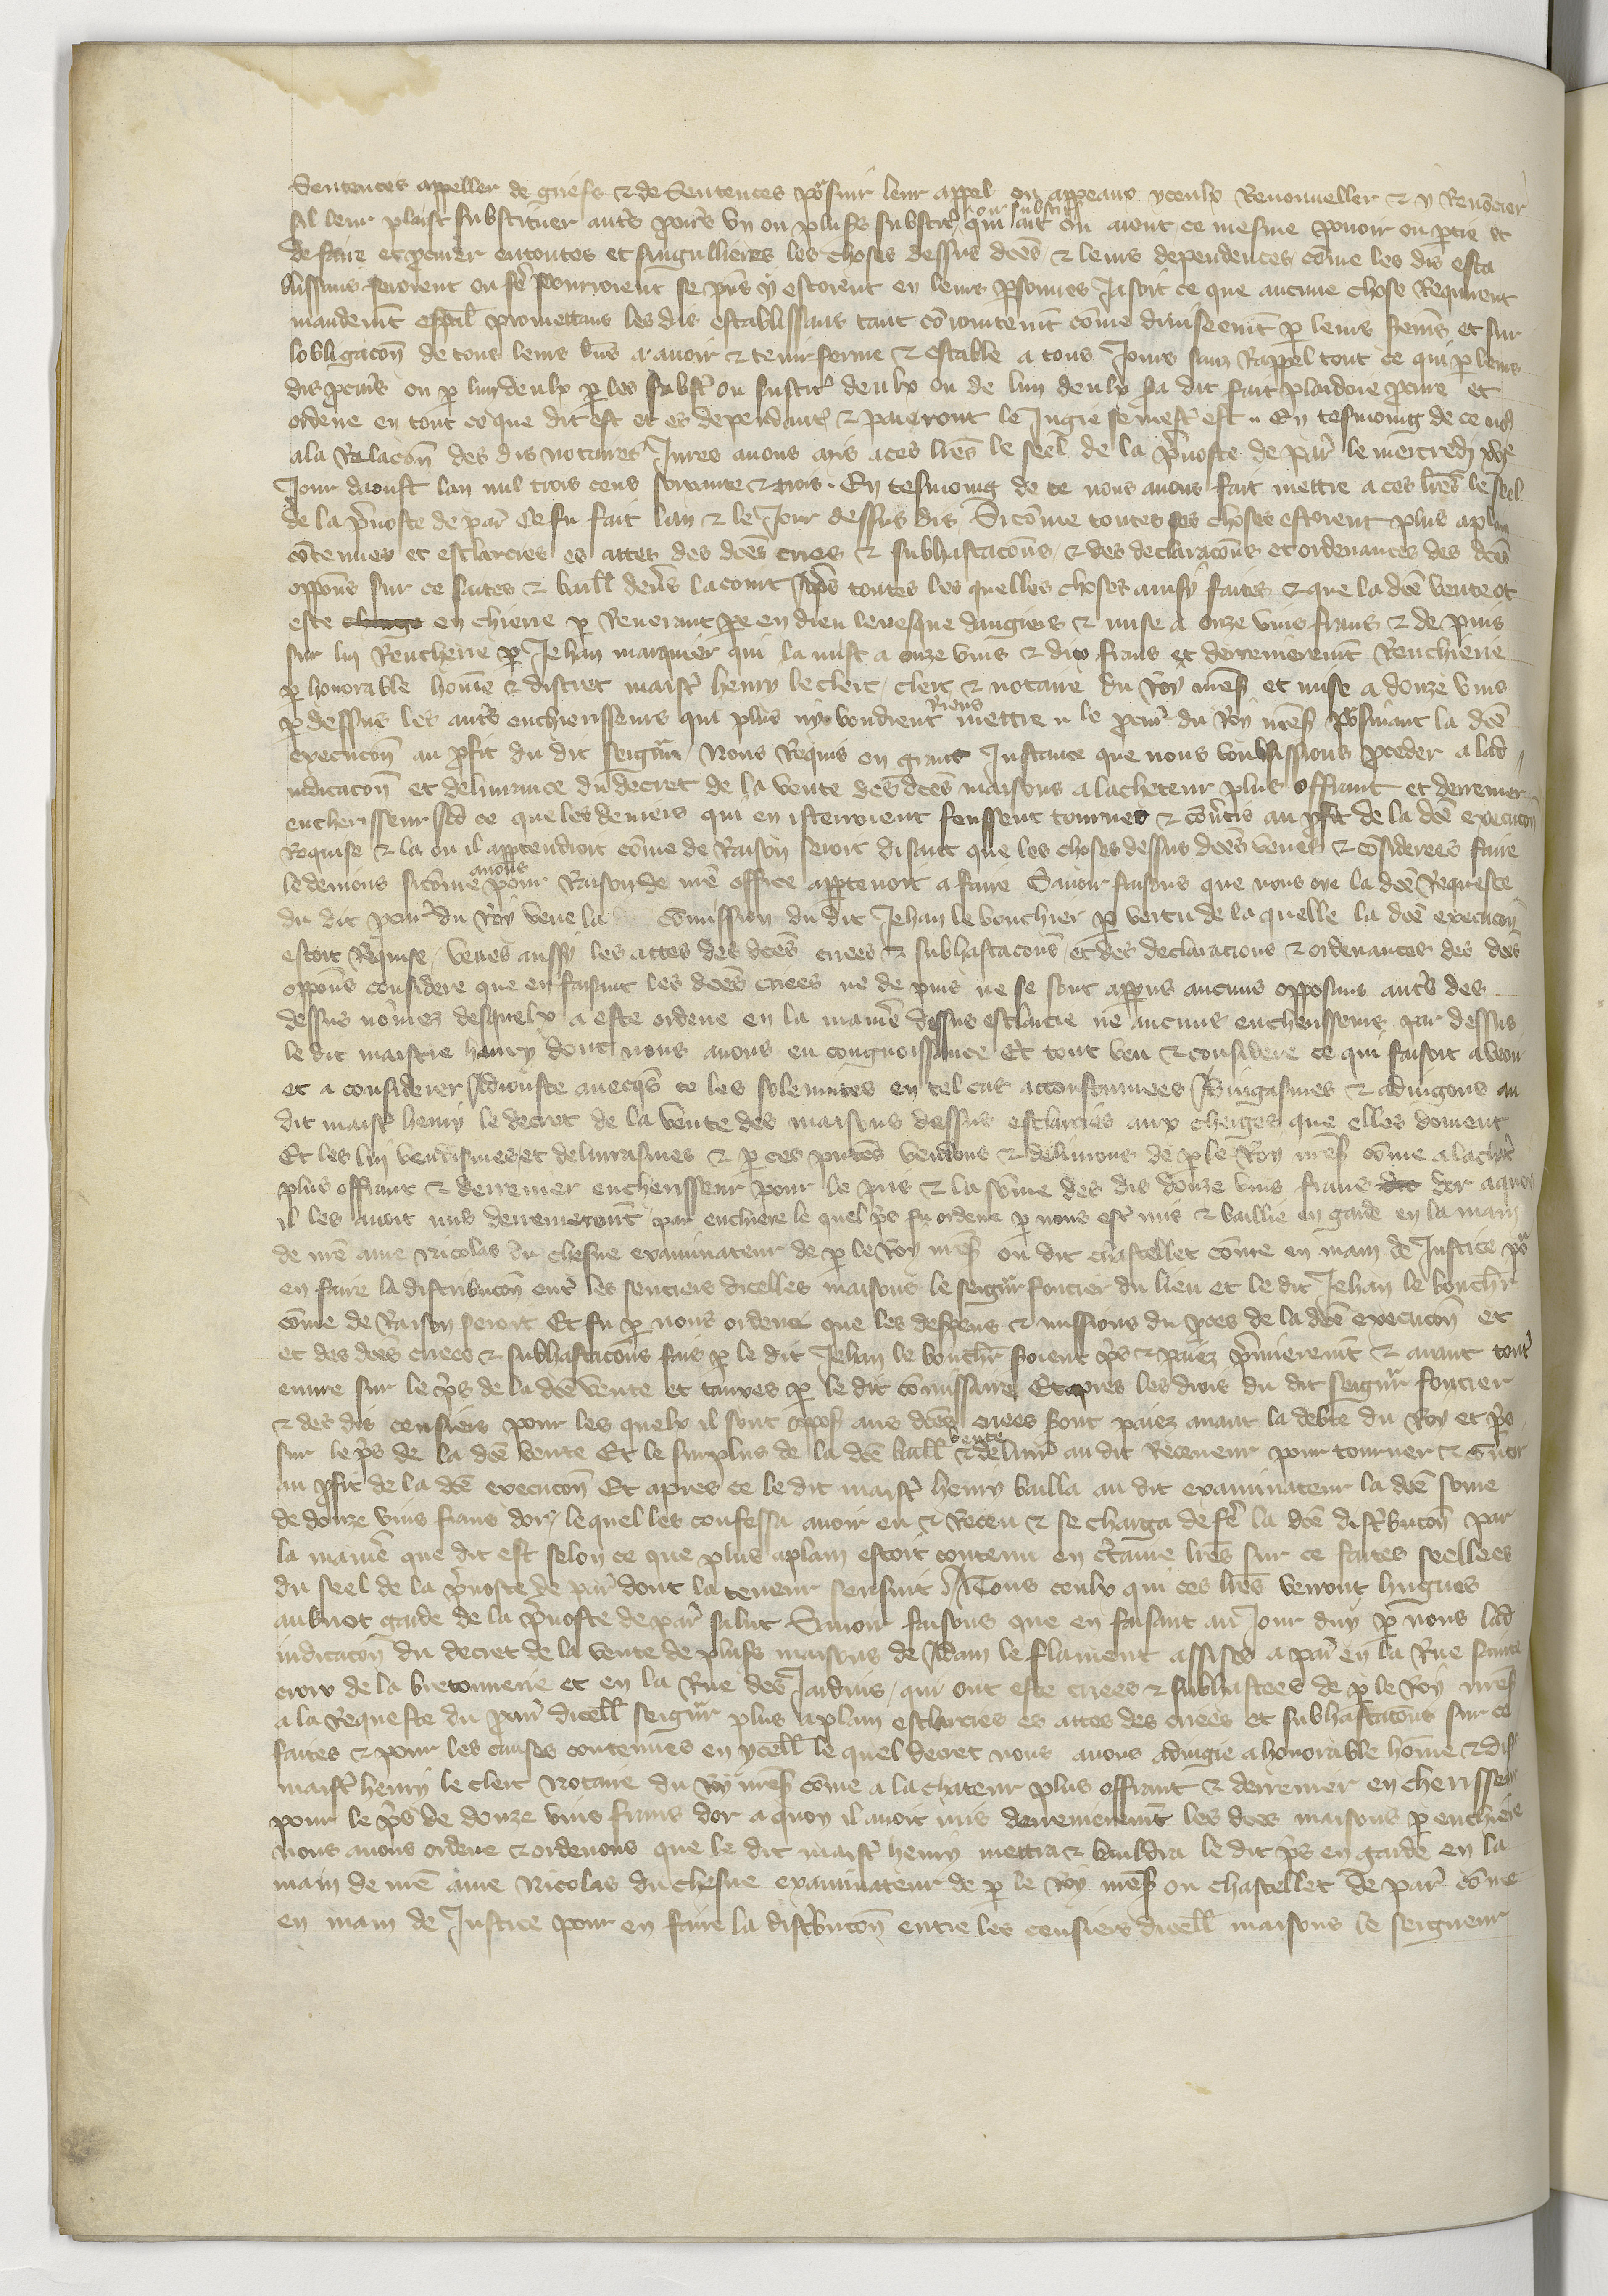 Sentences appeller de griefs & de Sentences pōsuir leur appel ou appeaux yceulx Renouveller & y Renōcier
sil leur plaist substituer aut̄s pours un ou plus̄s substit̄ qui ait ou aient ce mesme pouoir ou ptie et
de faire et pcurer en toutes et singullieres les choses dessus dc̄es & leurs dependences cōme les dis esta
blissans feroient ou fē pourroient se pn̄s y estoient en leurs psonnes Jasoit ce que aucune chose Requirent
mandemt̄ esp̄al promettans les dis establissans tant cōiointemt̄ cōme diuisemt̄ p leurs sermēs et sur
lobligacōn de tous leurs biēs a auoir & tenir ferme & estable a tous Jours sanz Rappel tout ce qui p leurs
dis pcurs ou p lun deulx p les subst̄ ou sustit̄ deulx ou de lun deulx sa dit fait plaidoie pcure et
ordene en tout ce que dit est et es dependant̄ & paieront le Jugie se mest̄ est En tesmoing de ce no9
a la Relacōn des dis notaires Jures auons mis a ces lr̄es le seel de la p̄uoste de par̄ le mercredi xvie
Jour daoust lan mil trois cens soixante & trois . En tesmoing de ce nous auons fait mettre a ces lr̄es le seel
de la p̄uoste de par̄ Ce fu fait lan & le Jour dessus dis Sicōme toutes ces choses estoient plus aplain
cōtenues et esclarcies es attes des dc̄es criees & subhastacōns & des declaracōns et ordenances des dc̄es
oppoñs sur ce faites & baill deūs la court Ap̄s toutes les quelles choses ainsy faites & que la dc̄e vente ot
este en chiere p Reuerant pe en dieu leuesque dangiers & mise a onze vins frans & de puis
sur luy Renchierie p Jehan marquier qui la mist a onze vins & dix frans et derrenieremt̄ Renchierie
p honorable hōme & discret maist̄ henry le clerc clerc & notaire du Roy nr̄es et mise a donze vins
p dessus les aut̄s enchierisseurs qui plus ny vouldrent Riens mettre le pcur̄ du Roy nr̄es pōsuiuant la dc̄e
execucōn au pfit du dit seigūr Nous Requis en grant Instance que nous voulsissions pceder a lad
iudicacōn et deliurance du decret de la vente des dc̄es maisons a lacheteur plus offrant et derrenier
encherisseur sed ce que les deniers qui en isteroient feussent tournes & cōuertis au pfit de la dc̄e execucōn
Requise & la ou il appendroit cōme de Raison seroit disant que les choses dessus dc̄es veues & cōsiderees faire
le deuions sicōme auons pour Raison de nr̄e office appertenoit a faire Sauoir faisons que nous oye la dc̄e Requeste
du dit pcur̄ du Roy veue la cōmission du dit Jehan le bouchier p vertu de la quelle la dc̄e execucōn
estoit Requise veues aussy les attes des dc̄es criees & subhastacōns et des declaracions & ordenances des dc̄es
oppoñs considere que en faisant les dc̄es criees ne de puis ne se sont apparus aucuns opposans aut̄s des
dessus nōmez desquelx a este ordene en la manēre dessus esclarcie ne aucuns encherisseurs par dessus
le dit maistre henry dont nous auons eu congnoissance Et tout veu & considere ce qui faisoit a veoir
et a considerer Adiouste auecqs ce les solemnites en tel cas accoustumees Adiugasmes & adiugons au
dit maist̄ henry le decret de la vente des maisons dessus esclarcies aux cherges que elles doiuent
Et les luy vendismes et deliurasmes & p ces pn̄tes vendons & deliurons de p le Roy nr̄es cōme a lachet̄r
plus offrant & derrenier encherisseur pour le pris & la sōme des dis donze vins frans dor a quoy
il les auoit mis derrenieremt̄ par enchiere le quel p̄s fu ordene p nous est̄ mis & baillie en garde en la main
de nr̄e ame Nicolas du chesne examinateur de p le Roy nr̄es ou dit chastellet cōme en main de Justice pō
en faire la distribucōn ent̄ les senciers dicelles maisons le seigūr foncier du lieu et le dit Jehan le bouchr̄
cōme de Raison seroit Et fu p nous ordene que les despens & missions du pces de la dc̄e execucōn et
et des dc̄es criees & subhastacōns fais p le dit Jehan le bouchr̄ soient p̄s & paiez p̄mieremt̄ & auant tout̄
euure sur le p̄s de la dc̄e vente et tauxes p le dit cōmissaire Et apres les drois du dit seigūr foncier
& des dis censiers pour les quelx il sont oppos aus dc̄es criees sont paiez auant la debte du Roy et p̄s
sur le p̄s de la dc̄e vente Et le surplus de la dc̄e vente baill & deliur̄ au dit Receueur pour tourner & cōu̇tir
au pfit de la dc̄e execucōn Et apres ce le dit maist̄ henry bailla au dit examinateur la dc̄e some
de donze vins frans dor lequel les confessa auoir eu & Receu & se charga de fē la dc̄e dist̄bucōn par
la manēre que dit est selon ce que plus aplain estoit contenu en c̄taine lr̄es sur ce faites seellees
du seel de la p̄uoste de par̄ dont la teneur sensuit A Tous ceulx qui ces lr̄es verront hugues
aubriot garde de la p̄uoste de par̄ salut Sauoir faisons que en faisant au Jour duy p nous lad
iudicacōn du decret de la vente de plus̄s maisons de Adam le flament assises a par̄ en la Rue sainte
croix de la bretonnerie et en la Rue des Jardins qui ont este criees & subhastees de p le Roy nr̄es
a la Requeste du pcur̄ dicell seigūr plus aplain esclarcies es attes des criees et subhastacōns sur ce
faites & pour les causes contenues en ycell le quel decret nous auons adiugie a honorable hōme & dis̄
maist̄ henry le clerc Notaire du Roy nr̄es cōme a lachateur plus offrant & derrenier en cherisseur
pour le p̄s de donze vins frans dor a quoy il auoit mis derrenieremt̄ les dc̄es maisons p enchiere
nous auons ordene & ordenons que le dit maist̄ henry mettra & baildra le dit p̄s en garde en la
main de nr̄e ame Nicolas du chesne examinateur de p le Roy nr̄es ou chastellet de par̄ cōme
en main de Justice pour en faire la dist̄bucōn entre les censiers dicell maisons le seigneur